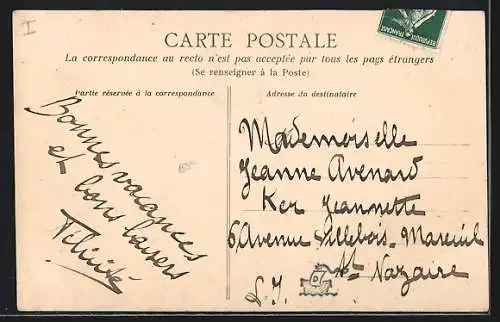 I
CARTE POSTALE
La correspondance au recto n'est pas acceptée par tous les pays étrangers
(Se renseigner à la Poste)
Partie réservée à la correspondance
Adresse du destinataire
Bonnes vacances
et bons baisers
Félicité
Mademoiselle
Jeanne Avenard
Ker Jeannette
6 Avenue Villebois-Mareuil
St Nazaire
L. I.